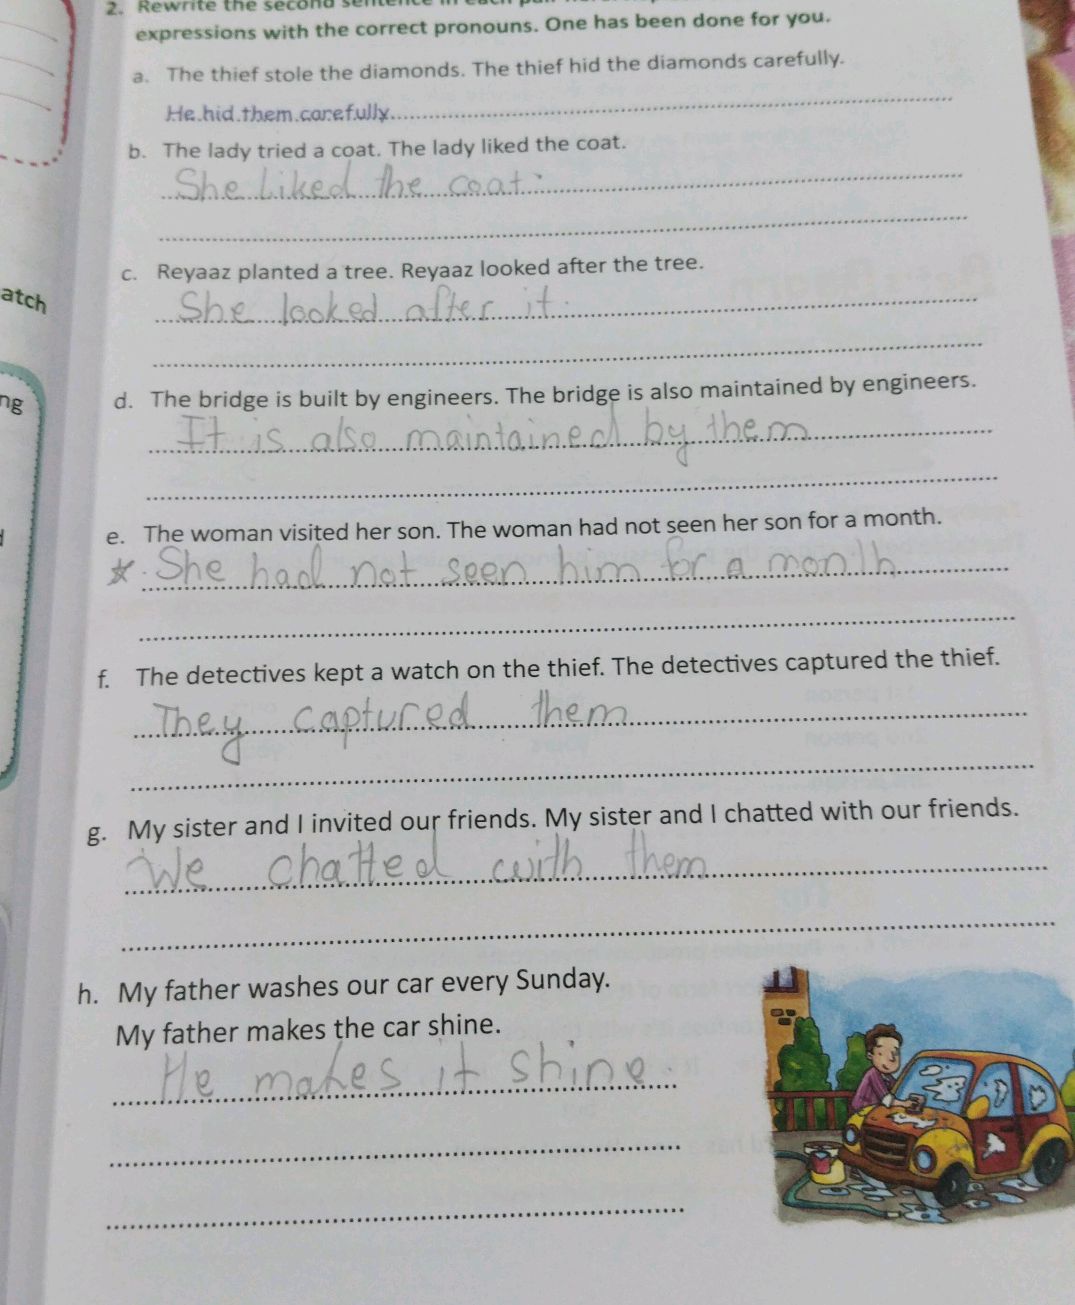 2. Rewrite the second sentence in each
expressions with the correct pronouns. One has been done for you.
a. The thief stole the diamonds. The thief hid the diamonds carefully.
He hid them carefully.
b. The lady tried a coat. The lady liked the coat.
She liked the coat.
c. Reyaaz planted a tree. Reyaaz looked after the tree.
She looked after it.
atch
d. The bridge is built by engineers. The bridge is also maintained by engineers.
ng
It is also maintained by them
e. The woman visited her son. The woman had not seen her son for a month.
She had not seen him for a month
f. The detectives kept a watch on the thief. The detectives captured the thief.
They captured them
g. My sister and I invited our friends. My sister and I chatted with our friends.
We chatted with them
h. My father washes our car every Sunday.
My father makes the car shine.
He makes it shine